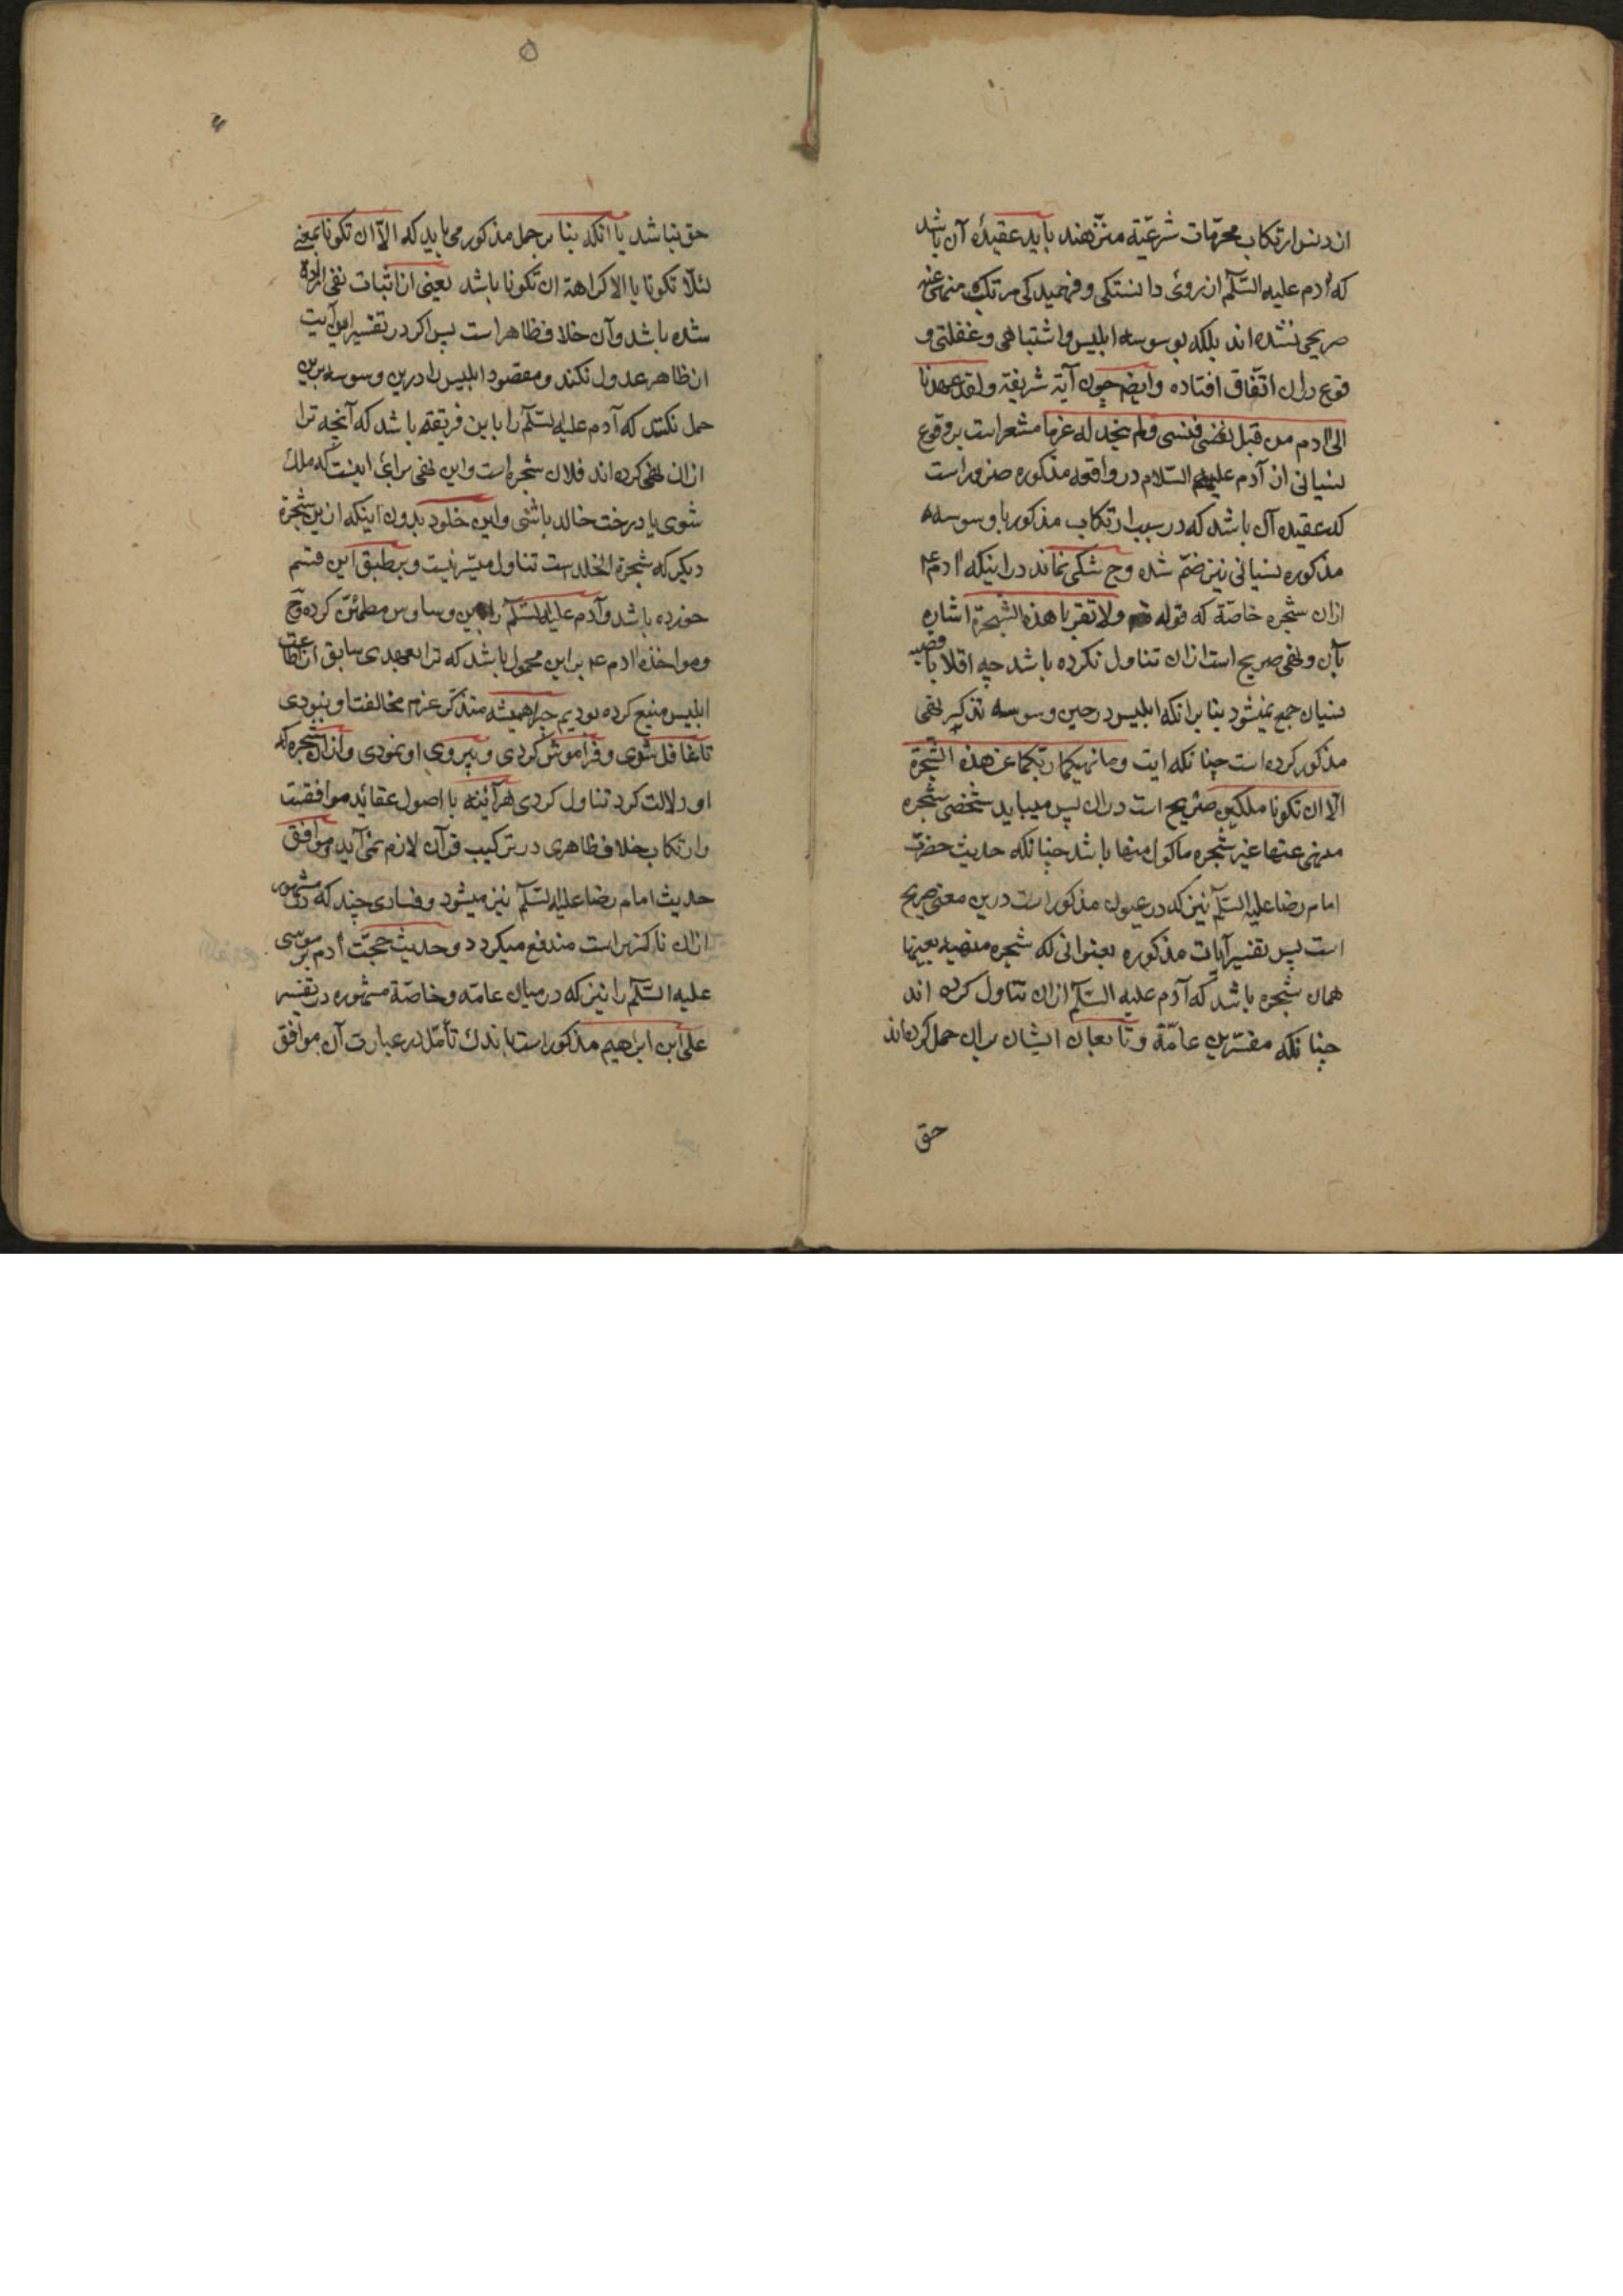 از دنس ارتکاب محرّمات شرعیّة منزّهند باید عقیدۀ آن باشد
که آدم علیه السّلم از روی دانستکی و فهمیدکی مرتکب منهی عنه
صریحی نشده اند بلکه بوسوسه ابلیس و اشتباهی و غفلتی و
قوع دران اتّفاق افتاده وایضم چون آیة شریفة ولقد عهدنا
الی آدم من قبل فنسی ولم نجد له عزما مشعر است بر وقوع
نسیانی از آدم علیه السّلام در واقعه مذکوره ضرور است
که عقیده آن باشد که در سبب ارتکاب مذکور با وسوسه
مذکوره نسیانی نیز ضمّ شده وح شکی نماند در اینکه آدم ع
ازان شجره خاصّة که قوله ولا تقربا هذه الشّجرة اشاره
بآن و نهی صریح است ازان تناول نکرده باشد چه اقلا با قضیه
نسیان جمع نمیشود بنا بر انکه ابلیس در حین وسوسه تذکیر نهی
مذکور کرده است چنانکه ایت وما نهیکما ربّکما عن هذه الشّجرة
الّا ان تکونا ملکین صریح است دران پس میباید شخصی شجره
منهی عنها غیر شجره ماکول منها باشد چنانکه حدیث حضرت
امام رضا علیه السّلم نیز که در عیون مذکور است درین معنی صریح
است پس تفسیر آیات مذکوره بعنوانی که شجره منهیه بعینها
همان شجره باشد که آدم علیه السّلم ازان تناول کرده اند
چنانکه مفسّرین عامّة و تابعان ایشان بران حمل کرده اند
حق
۵
حق نباشد یا انکه بنا بر حمل مذکور می باید که الّا ان تکونا بمعنی
لئلّا تکونا یا الا کراهة ان تکونا باشد یعنی از اثبات نفی اراده
شده باشد و آن خلاف ظاهر است پس اکر در تفسیر این آیت
از ظاهر عدول نکنند و مقصود ابلیس را درین وسوسه برین
حمل نکنند که آدم علیه السّلم را باین فریفته باشد که آنچه ترا
ازان نهی کرده اند فلان شجره است واین نهی برای اینست که ملک
شوی یا درخت خالد باشی واین خلود بدون اینکه ازین شجرة
دیکر که شجرة الخلد است تناول میسّر نیست و بر طبق این قسم
خورده باشد و آدم علیه السّلم را باین وساوس مطمئن کرده وح
ومواخذه آدم ع بر این محمول باشد که ترا بعهدی سابق از اطاعت
ابلیس منع کرده بودیم چرا همیشه متذکّر عزم مخالفت او نبودی
تا غافل شوی و فراموش کردی و پیروی او نمودی و ازان شجره که
او دلالت کرد تناول کردی هرآینه با اصول عقاید موافقست
وارتکاب خلاف ظاهری در ترکیب قرآن لازم نمی آید وموافق
حدیث امام رضا علیه السّلم نیز میشود و فسادی چند که مشهور
ازان ناکزیر است مندفع میکردد و حدیث حجّت آدم بر موسی
علیه السّلم را نیز که در میان عامّه و خاصّة مشهوره در تفسیر
علی ابن ابراهیم مذکور است باندک تأمّل در عبارت آن موافق